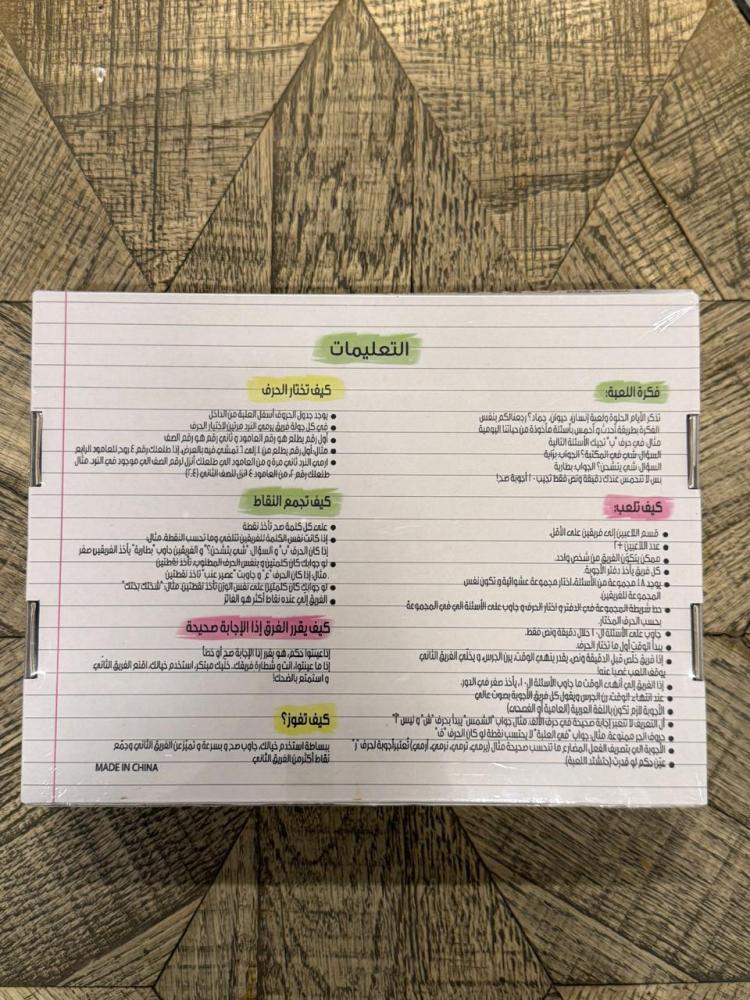 التعليمات
فكرة اللعبة:
تذكر الأيام الحلوة ولعبة إنسان، حيوان، جماد؟ رجعنالكم بنفس
الفكرة بطريقة أحدث و أحمس بأسئلة مأخوذة من حياتنا اليومية
مثال، في حرف "ب" تجيك الأسئلة التالية
السؤال: شي في المكتبة؟ الجواب: برّاية
السؤال: شي يتشحن؟ الجواب: بطارية
بس لا تتحمس عندك دقيقة ونص فقط تجيب ١٠ أجوبة صح!
كيف تلعب:
قسم اللاعبين إلى فريقين على الأقل.
عدد اللاعبين +٢
ممكن يتكوّن الفريق من شخص واحد.
كل فريق يأخذ دفتر الأجوبة.
يوجد ١٨ مجموعة من الأسئلة، اختار مجموعة عشوائية و تكون نفس
المجموعة للفريقين.
حط شريطة المجموعة في الدفتر و اختار الحرف و جاوب على الأسئلة الي في المجموعة
بحسب الحرف المختار.
جاوب على الأسئلة ال١٠ خلال دقيقة ونص فقط.
يبدأ الوقت أول ما تختار الحرف.
إذا فريق خلص قبل الدقيقة ونص، يقدر ينهي الوقت، يرن الجرس، و يخلي الفريق الثاني
يوقف اللعب غصبا عنه!
إذا الفريق إلي أنهى الوقت ما جاوب الأسئلة ال١٠، يأخذ صفر في الدور.
عند انتهاء الوقت، رن الجرس ويقول كل فريق الأجوبة بصوت عالي
الأجوبة لازم تكون باللغة العربية (العامية أو الفصحى)
ال التعريف لا تعتبر إجابة صحيحة في حرف الألف، مثال جواب "الشمس" يبدأ بحرف "ش" و ليس "أ"
حروف الجر ممنوعة، مثال: جواب "في العلبة" لا يحتسب نقطة لو كان الحرف "ف"
الأجوبة الي بتصريف الفعل المضارع ما تنحسب صحيحة مثال (يرمي، ترمي، نرمي، أرمي) تُعتبر أجوبة لحرف "ر"
عيّن حكم لو قدرت (حتشتد اللعبة).
كيف تختار الحرف
يوجد جدول الحروف أسفل العلبة من الداخل
في كل جولة فريق يرمي النرد مرتين لاختيار الحرف
أول رقم يطلع هو رقم العامود و ثاني رقم هو رقم الصف
مثال: أول رقم يطلع من ١ إلى ٦ تمشي فيه بالعرض، إذا طلعلك رقم ٤ روح للعامود الرابع
ارمي النرد ثاني مرة و من العامود الي طلعلك أنزل لرقم الصف الي موجود في النرد، مثال
طلعلك رقم ٢، من العامود ٤ انزل للصف الثاني (٢،٤)
كيف تجمع النقاط
على كل كلمة صح تأخذ نقطة
إذا كانت نفس الكلمة للفريقين تتلغي وما تحسب النقطة، مثال:
إذا كان الحرف "ب" و السؤال: "شي يتشحن؟" و الفريقين جاوب "بطارية" يأخذ الفريقين صفر
لو جوابك كان كلمتين و بنفس الحرف المطلوب، تأخذ نقطتين
مثال: إذا كان الحرف "ع" و جاوبت "عصير عنب" تأخذ نقطتين
لو جوابك كان كلمتين على نفس الوزن تأخذ نقطتين، مثال: "شختك بختك"
الفريق إلي عنده نقاط أكثر هو الفائز
كيف يقرر الفرق إذا الإجابة صحيحة
إذا عينتوا حكم، هو يقرر إذا الإجابة صح أو خطأ
إذا ما عينتوا، انت و شطارة فريقك. خليك مبتكر، استخدم خيالك، اقنع الفريق الثاني
و استمتع بالضحك!
كيف تفوز؟
ببساطة استخدم خيالك، جاوب صح و بسرعة و تميّز عن الفريق الثاني وجمّع
نقاط أكثر من الفريق الثاني
MADE IN CHINA